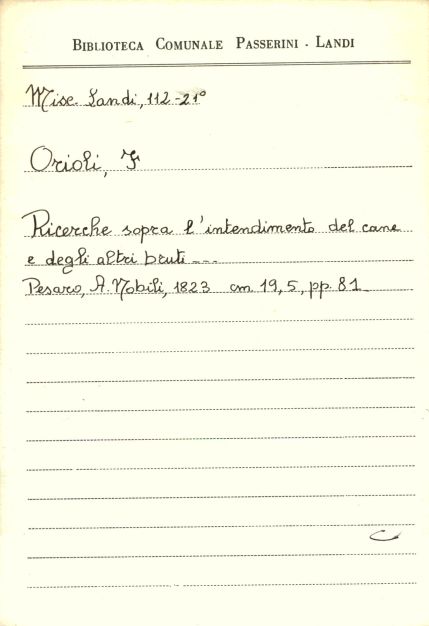 BIBLIOTECA COMUNALE PASSERINI - LANDI
Misc. Landi, 112-21°
Orioli, F
Ricerche sopra l'intendimento del cane
e degli altri bruti ---
Pesaro, A. Nobili, 1823 cm 19,5, pp. 81